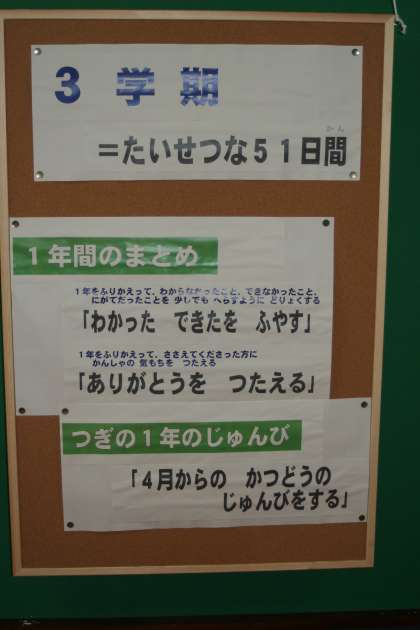 3 学 期
かん
=たいせつな51日間
1年間のまとめ
1年をふりかえって、わからなかったこと、できなかったこと、
にがてだったことを 少しでも へらすように どりょくする
「わかった できたを ふやす」
1年をふりかえって、ささえてくださった方に
かんしゃの 気もちを つたえる
「ありがとうを つたえる」
つぎの1年のじゅんび
「4月からの かつどうの
じゅんびをする」